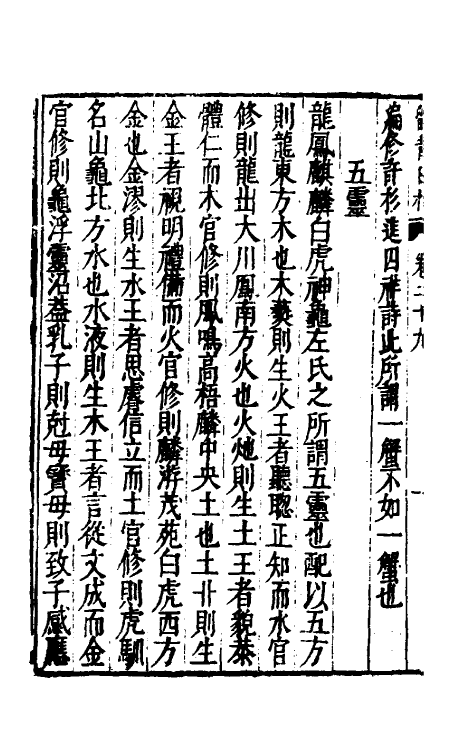 卷二十九
許杉進四禪詩此所謂一蟹不如一蟹也
五靈
龍鳳麒麟白虎神龜左氏之所謂五靈也配以五方
則龍東方木也木爇則生火王者聽聰正知而水官
修則龍出大川鳳南方火也火灺則生土王者貌恭
體仁而木官修則鳳鳴高梧麟中央土也土卝則生
金王者視明禮備而火官修則麟游茂苑白虎西方
金也金漻則生水王者思睿信立而土官修則虎馴
名山龜北方水也水液則生木王者言從文成而金
官修則龜浮靈沼蓋乳子則尅母寳母則致子感應